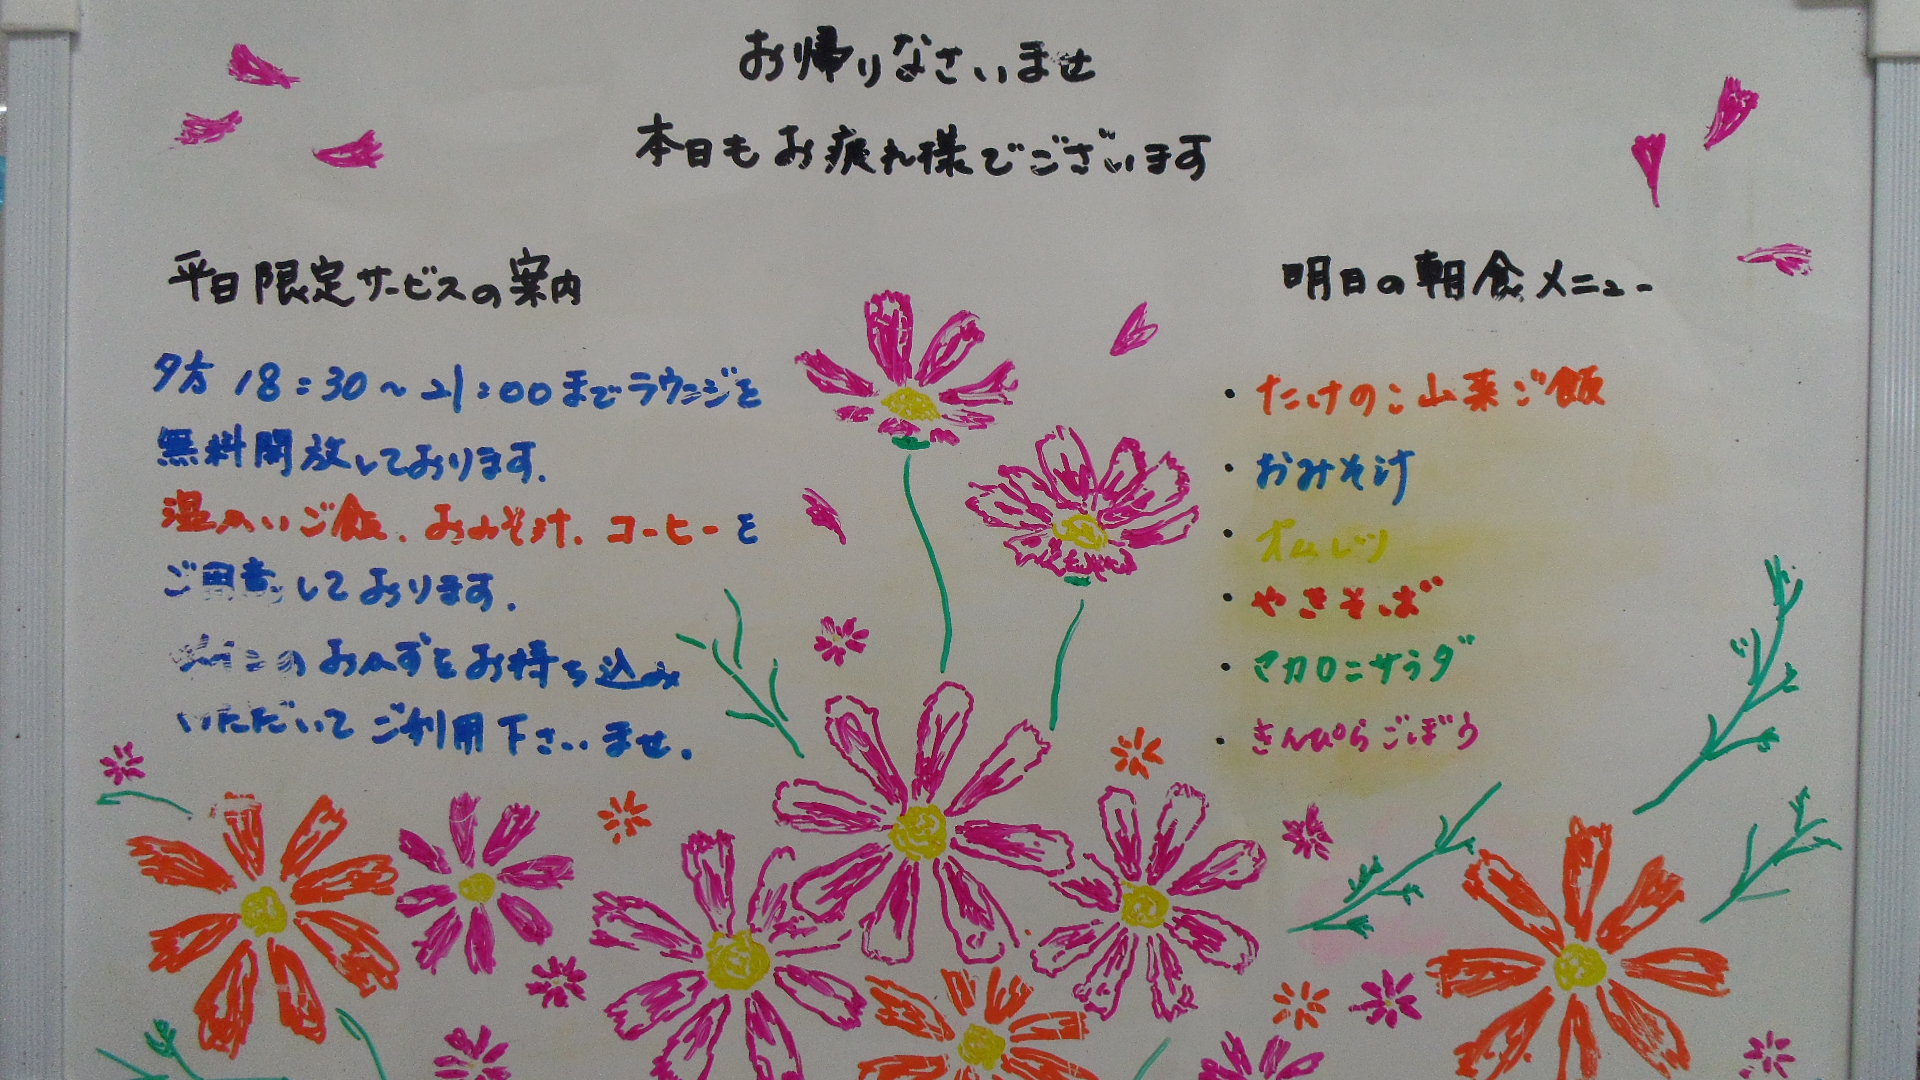 お帰りなさいませ
本日もお疲れ様でございます
平日限定サービスの案内
夕方 18:30～21:00までラウンジを
無料開放しております.
温かいご飯、おみそ汁、コーヒーを
ご用意しております.
のおかずをお持ち込み
いただいてご利用下さいませ.
明日の朝食メニュー
・たけのこ山菜ご飯
・おみそ汁
・オムレツ
・やきそば
・マカロニサラダ
・きんぴらごぼう